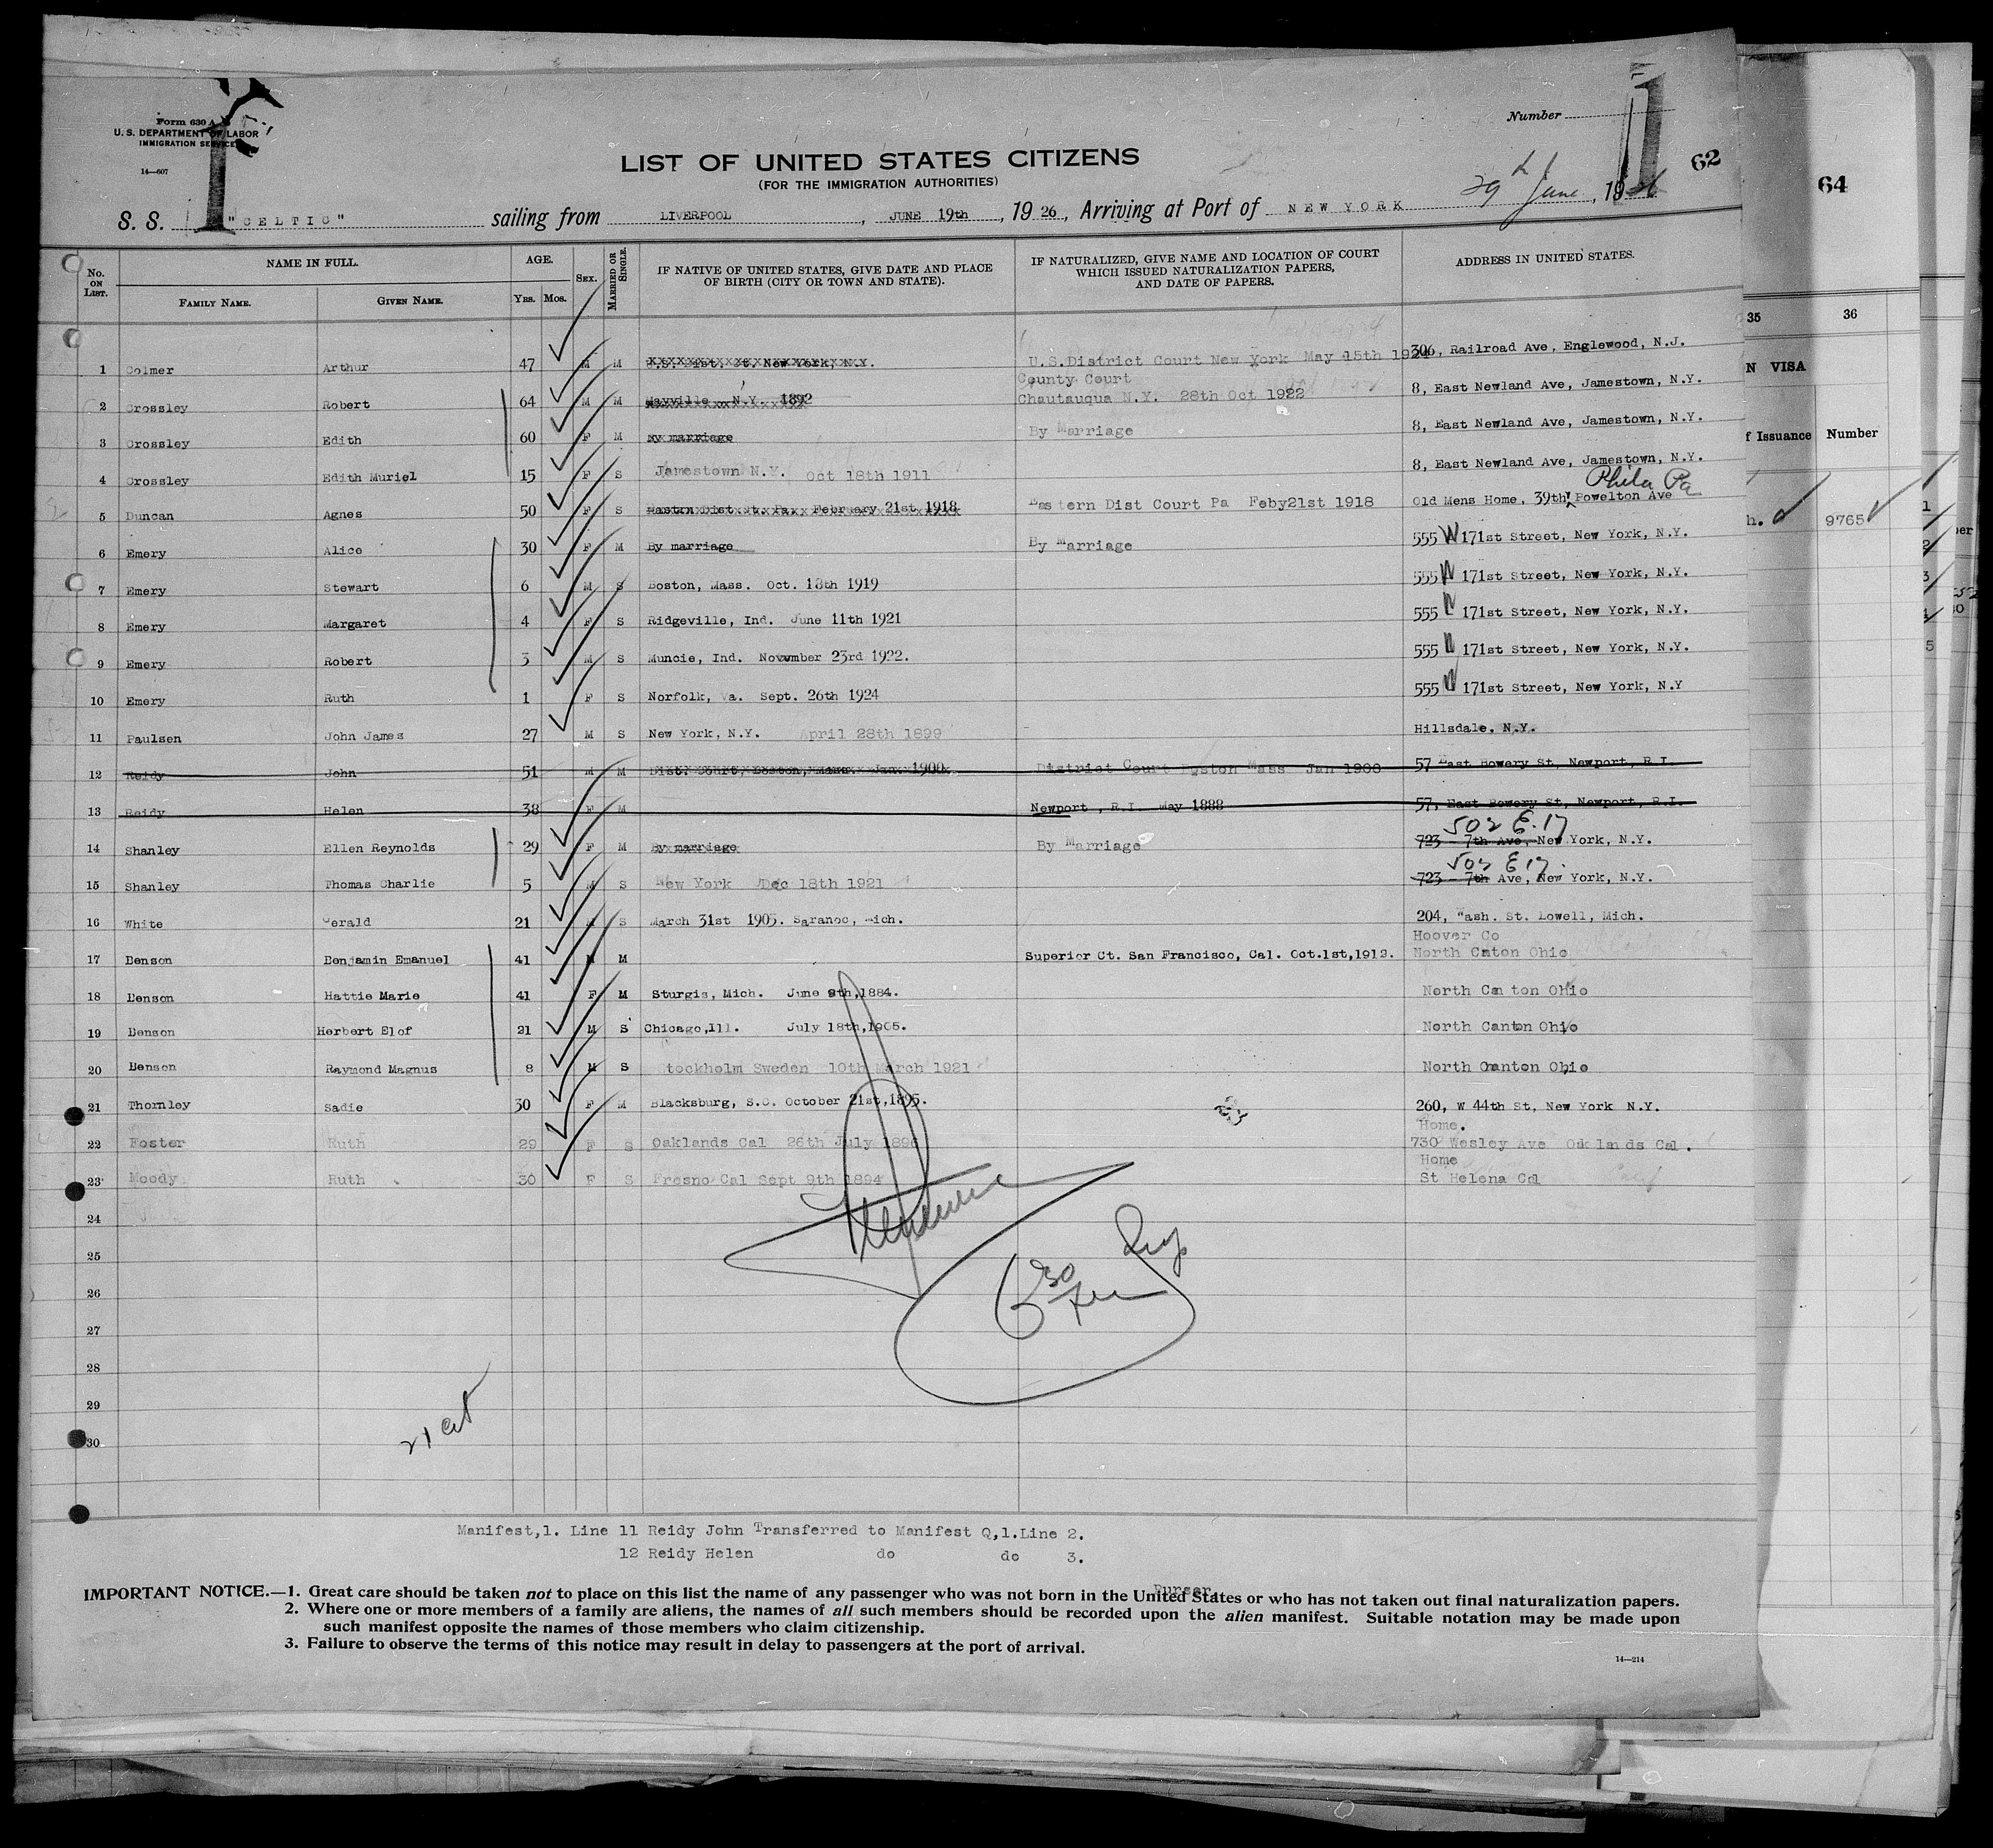 Form 630 A
U. S. DEPARTMENT OF LABOR
IMMIGRATION SERVICE
14—607
Number
LIST OF UNITED STATES CITIZENS
(FOR THE IMMIGRATION AUTHORITIES)
62
64
S. S. "CELTIC" sailing from LIVERPOOL, JUNE 19th, 1926, Arriving at Port of NEW YORK 29th June, 1926
No. ON LIST. NAME IN FULL. AGE. SEX. MARRIED OR SINGLE. IF NATIVE OF UNITED STATES, GIVE DATE AND PLACE OF BIRTH (CITY OR TOWN AND STATE). IF NATURALIZED, GIVE NAME AND LOCATION OF COURT WHICH ISSUED NATURALIZATION PAPERS, AND DATE OF PAPERS. ADDRESS IN UNITED STATES.
FAMILY NAME. GIVEN NAME. YRS. MOS.
35 36
N VISA
f Issuance Number
h. 9765
1 Colmer Arthur 47 M M U.S. Dist. Ct. New York, N.Y. U.S.District Court New York May 15th 1924 306, Railroad Ave, Englewood, N.J.
2 Crossley Robert 64 M M Mayville N.Y. 1892 County Court Chautauqua N.Y. 28th Oct 1922 8, East Newland Ave, Jamestown, N.Y.
3 Crossley Edith 60 F M By marriage By Marriage 8, East Newland Ave, Jamestown, N.Y.
4 Crossley Edith Muriel 15 F S Jamestown N.Y. Oct 18th 1911 8, East Newland Ave, Jamestown, N.Y.
Phila Pa
5 Duncan Agnes 50 F S Eastern Dist Ct. Pa. February 21st 1918 Eastern Dist Court Pa Feby21st 1918 Old Mens Home, 39th Powelton Ave
6 Emery Alice 30 F M By marriage By Marriage 555 W 171st Street, New York, N.Y.
7 Emery Stewart 6 M S Boston, Mass. Oct. 18th 1919 555 W 171st Street, New York, N.Y.
8 Emery Margaret 4 F S Ridgeville, Ind. June 11th 1921 555 W 171st Street, New York, N.Y.
9 Emery Robert 3 M S Muncie, Ind. November 23rd 1922. 555 W 171st Street, New York, N.Y.
10 Emery Ruth 1 F S Norfolk, Va. Sept. 26th 1924 555 W 171st Street, New York, N.Y
11 Paulsen John James 27 M S New York, N.Y. April 28th 1899 Hillsdale, N.Y.
12 Reidy John 51 M M Dist. Court, Boston, Mass. Jan 1900 District Court Boston Mass Jan 1900 57 East Bowery St, Newport, R.I.
13 Reidy Helen 38 F M Newport, R.I. May 1888 57, East Bowery St, Newport, R.I.
502 E. 17
14 Shanley Ellen Reynolds 29 F M By marriage By Marriage 723 - 7th Ave, New York, N.Y.
502 E 17.
15 Shanley Thomas Charlie 5 M S New York Dec 18th 1921 723 - 7th Ave, New York, N.Y.
16 White Gerald 21 M S March 31st 1905. Saranac, Mich. 204, Wash. St. Lowell, Mich.
17 Benson Benjamin Emanuel 41 M M Superior Ct. San Francisco, Cal. Oct.1st,1912. Hoover Co North Cnton Ohio
18 Benson Hattie Marie 41 F M Sturgis, Mich. June 8th,1884. North Canton Ohio
19 Benson Herbert Elof 21 M S Chicago,Ill. July 18th,1905. North Canton Ohio
20 Benson Raymond Magnus 8 M S Stockholm Sweden 10th March 1921 North Canton Ohio
21 Thornley Sadie 30 F M Blacksburg, S.C. October 21st,1895. 260, W 44th St, New York N.Y.
22 Foster Ruth 29 F S Oaklands Cal 26th July 1896 Home. 730 Wesley Ave Oaklands Cal.
23 Moody Ruth 30 F S Fresno Cal Sept 9th 1894 Home St Helena Cal
24
25
26
27
28
29
30
21 cit
Manifest,1. Line 11 Reidy John Transferred to Manifest Q,1.Line 2.
12 Reidy Helen do do 3.
Purser.
IMPORTANT NOTICE.—1. Great care should be taken not to place on this list the name of any passenger who was not born in the United States or who has not taken out final naturalization papers.
2. Where one or more members of a family are aliens, the names of all such members should be recorded upon the alien manifest. Suitable notation may be made upon
such manifest opposite the names of those members who claim citizenship.
3. Failure to observe the terms of this notice may result in delay to passengers at the port of arrival.
14—214